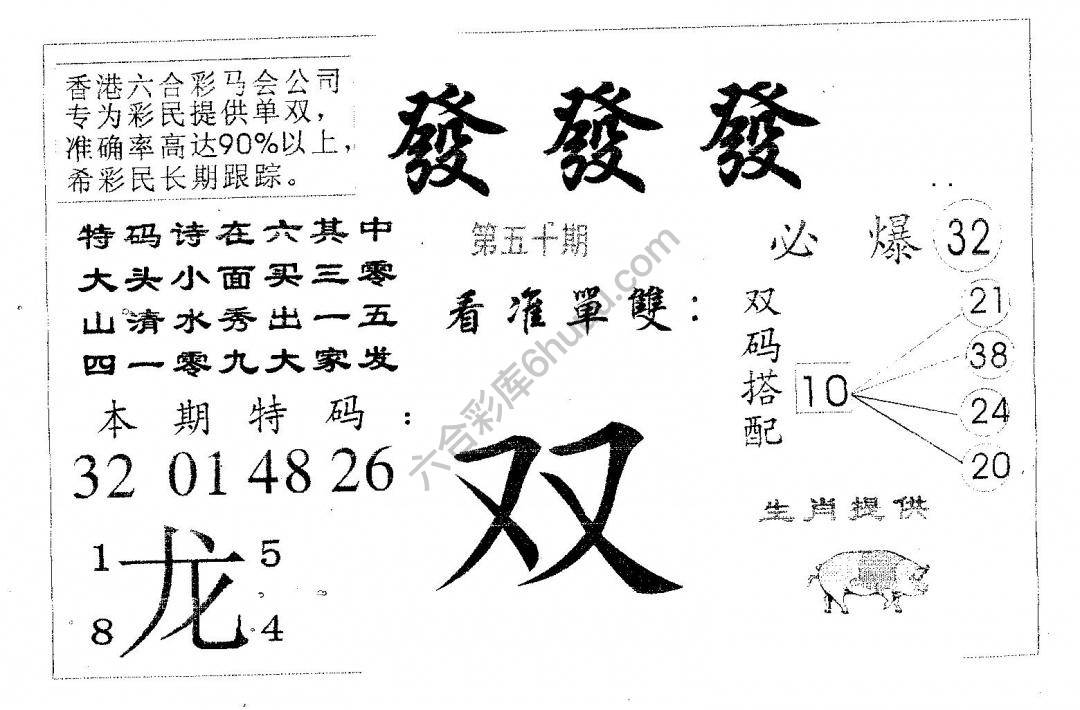 香港六合彩马会公司
专为彩民提供单双，
准确率高达90%以上，
希彩民长期跟踪。
發發發
特码诗在六其中
大头小面买三零
山清水秀出一五
四一零九大家发
第五十期
看准單雙：
必爆32
双码搭配
10
21
38
24
20
本期特码：
32 01 48 26
双
生肖提供
1 5
龙
8 4
六合彩库6huku.com